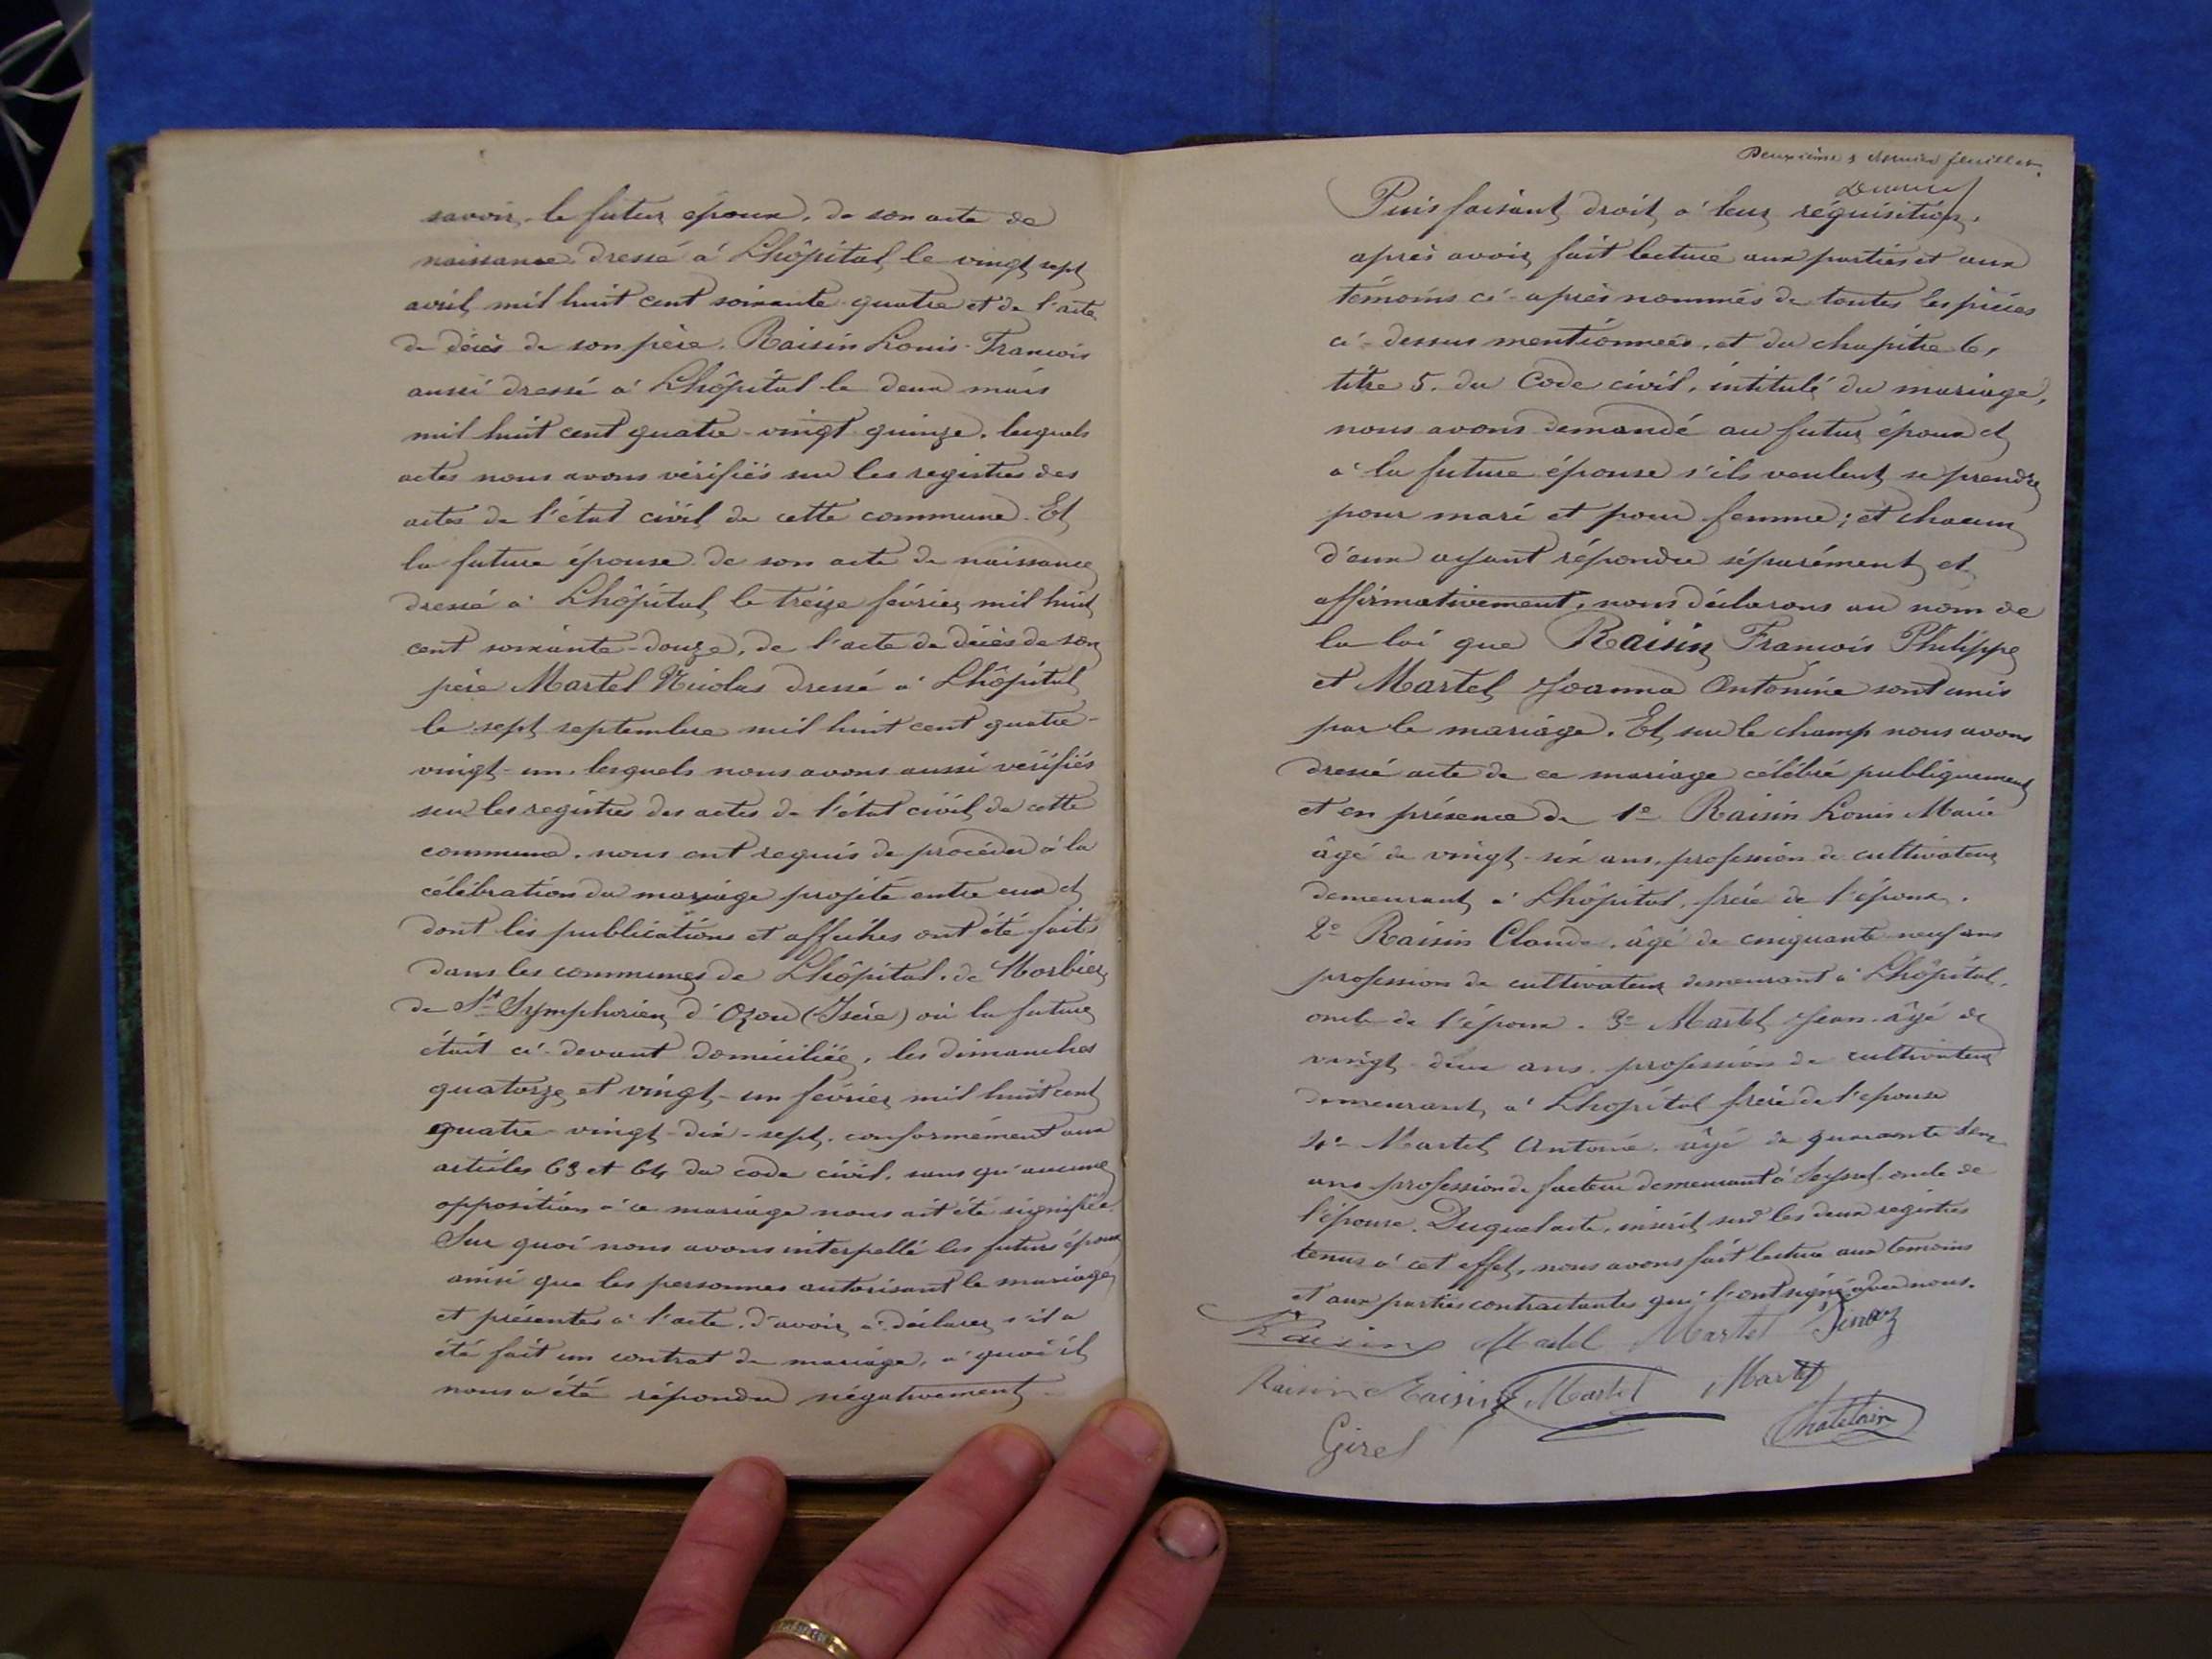 savoir, le futur époux, de son acte de
naissance dressé à Lhôpital, le vingt sept
avril mil huit cent soixante quatre et de l'acte
de décès de son père, Raisin Louis-François
aussi dressé à Lhôpital le deux mars
mil huit cent quatre-vingt quinze, lesquels
actes nous avons vérifiés sur les registres des
actes de l'état civil de cette commune. Et
la future épouse de son acte de naissance
dressé à Lhôpital le treize février mil huit
cent soixante-douze, de l'acte de décès de son
père Martel Nicolas dressé à Lhôpital
le sept septembre mil huit cent quatre-
vingt-un, lesquels nous avons aussi vérifiés
sur les registres des actes de l'état civil de cette
commune, nous ont requis de procéder à la
célébration du mariage projeté entre eux et
dont les publications et affiches ont été faits
dans les communes de Lhôpital, de
de St Symphorien d'Ozon (Isère) où la future
était ci-devant domiciliée, les dimanches
quatorze et vingt-un février mil huit cent
quatre-vingt-dix-sept, conformément aux
articles 63 et 64 du code civil, sans qu'aucune
opposition à ce mariage nous ait été signifiée.
Sur quoi nous avons interpellé les futurs époux
ainsi que les personnes autorisant le mariage
et présentes à l'acte, d'avoir à déclarer s'il a
été fait un contrat de mariage, à quoi il
nous a été répondu négativement.
Deuxième & dernier feuillet.
Puis faisant droit à leur réquisition,
après avoir fait lecture aux parties et aux
témoins ci-après nommés de toutes les pièces
ci-dessus mentionnées, et du chapitre 6,
titre 5. du Code civil, intitulé du mariage,
nous avons demandé au futur époux et
à la future épouse s'ils veulent se prendre
pour mari et pour femme; et chacun
d'eux ayant répondu séparément et
affirmativement, nous déclarons au nom de
la loi que Raisin François Philippe
et Martel Joanna Antonine sont unis
par le mariage. Et, sur le champ nous avons
dressé acte de ce mariage célébré publiquement
et en présence de 1º Raisin Louis Marie
âgé de vingt-six ans, profession de cultivateur
demeurant à Lhôpital, frère de l'époux.
2º Raisin Claude, âgé de cinquante neuf ans
profession de cultivateur demeurant à Lhôpital,
oncle de l'époux. 3º Martel Jean âgé de
vingt-deux ans, profession de cultivateur
demeurant à Lhopital frère de l'epouse
4º Martel Antoine, âgé de quarante
ans profession de facteur demeurant à Seyssel oncle de
l'épouse. Duquel acte, inscrit sur les deux registres
tenus à cet effet, nous avons fait lecture aux temoins
et aux parties contractantes qui l'ont signé avec nous.
Raisin Martel Martel Pinoz
Raisin Raisin Martel Martel
Girel Chatelain